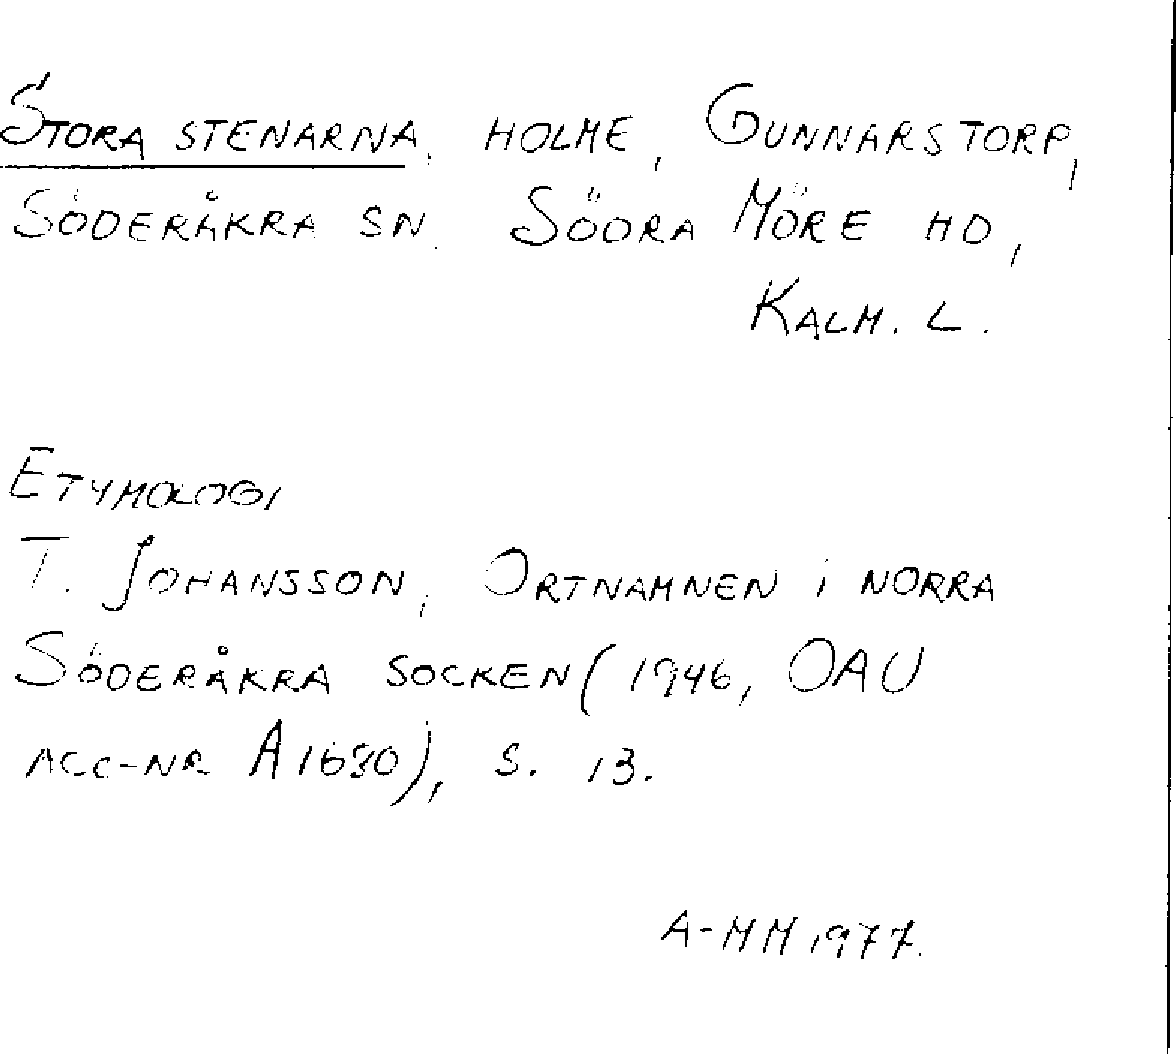 STORA STENARNA, HOLME, GUNNARSTORP,
SÖDERÅKRA SN. SÖDRA MÖRE HD,
KALM. L.
ETYMOLOGI
T. JOHANSSON, ORTNAMNEN i NORRA
SÖDERÅKRA SOCKEN (1946, OAU
ACC-NR A1680), S. 13.
A-MM 1977.